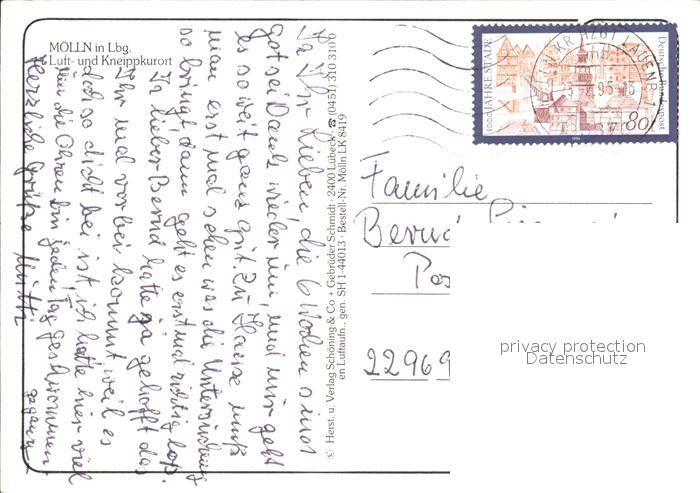 MÖLLN in Lbg.
Luft- und Kneippkurort
Ja Ihr Lieben, die 6 Wochen sind
got sei Dank wieder um, und mir geht
es so weit ganz gut. Zu Hause muß
man erst mal sehen was die Untersuchung
so bringt, dann geht es erst mal richtig los.
Ja lieber Bernd hatte ja gehofft das
Ihr mal vorbei kommt, weil es
doch so dicht bei ist, ich hatte hier viel
um die Ohren bin jeden Tag geschwommen
Herzliche Grüße Mutti
© Herst. u. Verlag Schöning & Co + Gebrüder Schmidt · 2400 Lübeck · ☎ (0451) 310 310
en Luftaufn., gen. SH 1-44013 · Bestell-Nr. Mölln LK 8419
1000 JAHRE STADE
Deutsche Bundespost
80
Familie
Bernd
22969
privacy protection
Datenschutz